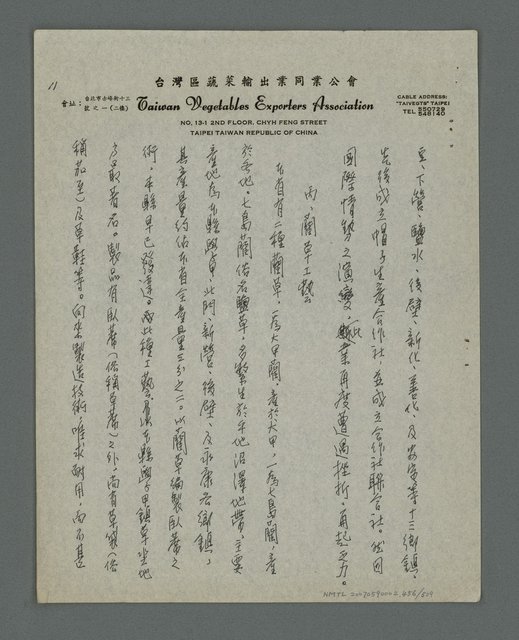 台灣區蔬菜輸出業同業公會
會址：台北市赤峰街十三號之一（二樓）
Taiwan Vegetables Exporters Association
CABLE ADDRESS:
"TAIVEGTS" TAIPEI
TEL 550729
548140
NO. 13-1 2ND FLOOR, CHYH FENG STREET
TAIPEI TAIWAN REPUBLIC OF CHINA
11
里、下營、鹽水、後壁、新化、善化、及安定等十三鄉鎮，
先後成立帽子生產合作社，並成立合作社聯合社。然因
國際情勢之演變，此業再度遭遇挫折，再起乏力。
丙、藺草工藝
本省有二種藺草，一為大甲藺，產於大甲，一為七島藺，產
於各地。七島藺俗名鹽草，多繁生於平地沼澤地帶，主要
產地為本縣學甲、北門、新營、後壁、及永康各鄉鎮，
其產量約佔本省全產量三分之二。以藺草編製臥蓆之
術，本縣早已發達。而此種工藝
方最著名。製品有臥蓆（俗稱草蓆）之外，尚有草袋（俗
稱茄至）及草鞋等。向來製造技術唯求耐用，而不甚
NMTL 20070590002_456/529